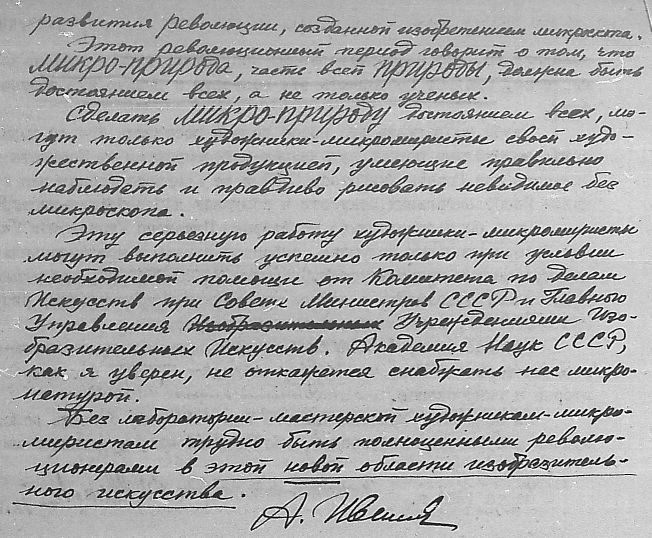 развития революции, созданной изобретением микроскопа.
Этот революционный период говорит о том, что
микро-природа, часть всей природы, должна быть
достоянием всех, а не только ученых.
Сделать микро-природу достоянием всех, мо-
гут только художники-микромиристы своей худо-
жественной продукцией, умеющие правильно
наблюдать и правдиво рисовать невидимое без
микроскопа.
Эту серьезную работу художники-микромиристы
могут выполнить успешно только при условии
необходимой помощи от Комитета по делам
Искусств при Совете Министров СССР и Главного
Управления Изобразительных Учреждениями Изо-
бразительных Искусств. Академия Наук СССР,
как я уверен, не откажется снабжать нас микро-
натурой.
Без лаборатории-мастерской художникам-микро-
миристам трудно быть полноценными револю-
ционерами в этой новой области изобразитель-
ного искусства.
А.